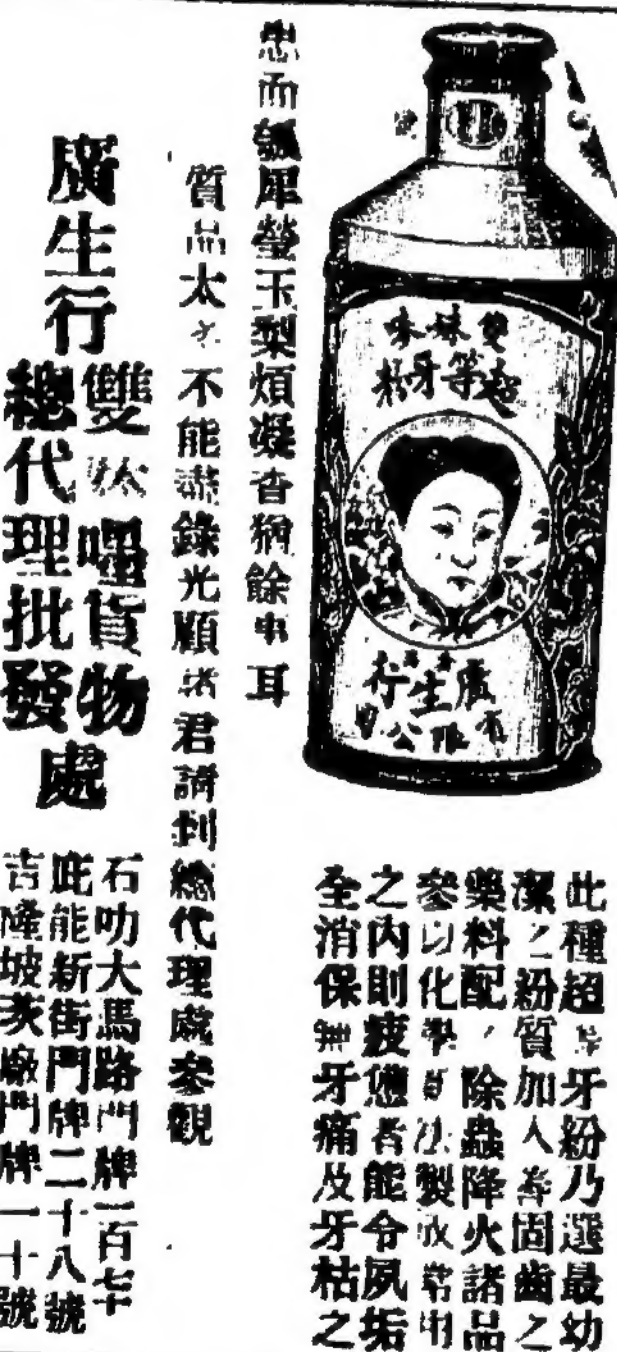 雙妹味
超等牙粉
廣生行
有限公司
此種超等牙粉乃選最幼
潔之粉質加入善固齒之
藥料配 除蟲降火諸品
參以化學 法製成常用
之內則疲憊者能令夙垢
全消保無牙痛及牙枯之
患而瓠犀瑩玉梨煩凝香猶餘事耳
質品太多不能盡錄光顧諸君請到總代理處參觀
廣生行
雙妹嘜貨物
總代理批發處
石叻大馬路門牌一百七十
庇能新街門牌二十八號
吉隆坡茨廠門牌一十號